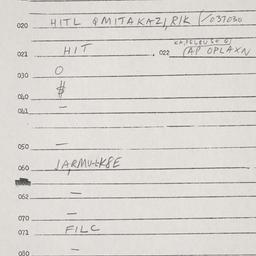 020 HITL QMITAKAZI, RIK (/037030
021 HIT . 022 (AP OPLAXN
030 O
040 $
041 —
050 —
060 JARMU-LK8E
062 —
070 —
071 FILC
080 —